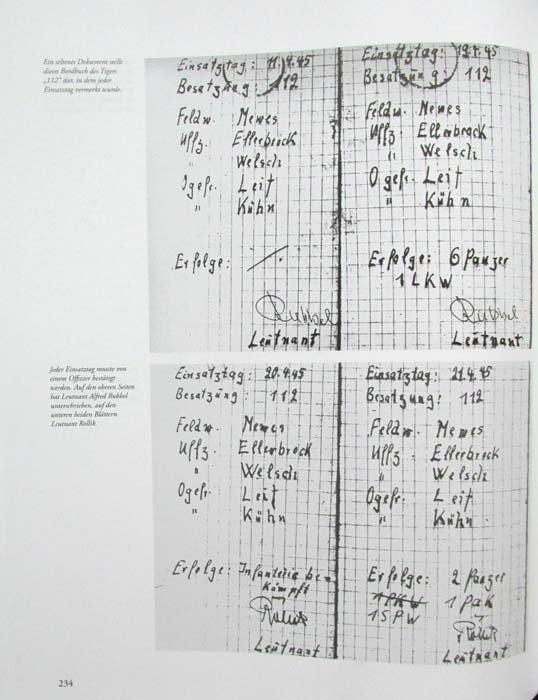 Ein seltenes Dokument stellt
dieses Bordbuch des Tigers
„112" dar, in dem jeder
Einsatztag vermerkt wurde.
Einsatztag: 11.4.45
Besatzung: 112
Feldw. Mewes
Uffz. Ellerbrock
" Welsch
Ogefr. Leit
" Kühn
Erfolge: ∕.
Rubbel
Leutnant
Einsatztag: 19.4.45
Besatzung: 112
Feldw. Mewes
Uffz Ellerbrock
" Welsch
Ogefr. Leit
" Kühn
Erfolge: 6 Panzer
1 LKW
Rubbel
Leutnant
Jeder Einsatztag musste von
einem Offizier bestätigt
werden. Auf den oberen Seiten
hat Leutnant Alfred Rubbel
unterschrieben, auf den
unteren beiden Blättern
Leutnant Rollik.
Einsatztag: 20.4.45
Besatzung: 112
Feldw. Mewes
Uffz. Ellerbrock
" Welsch
Ogefr. Leit
" Kühn
Erfolge: Infanterie be-
kämpft
Rollik
Leutnant
Einsatztag: 21.4.45
Besatzung: 112
Feldw. Mewes
Uffz. Ellerbrock
" Welsch
Ogefr. Leit
" Kühn
Erfolge: 2 Panzer
1 PKW 1 Pak
1 SPW
Rollik
Leutnant
234